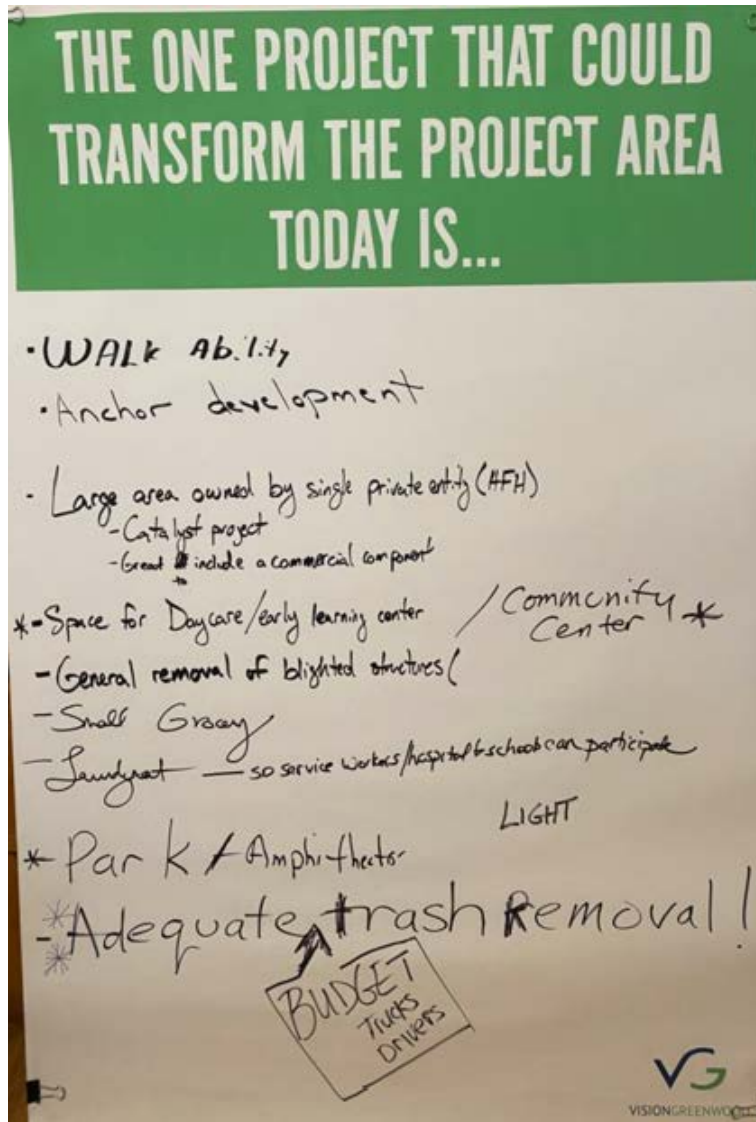 THE ONE PROJECT THAT COULD
TRANSFORM THE PROJECT AREA
TODAY IS...
• WALK Ability
• Anchor development
- Large area owned by single private entity (AFH)
- Catalyst project
- Great to include a commercial component
* - Space for Daycare/early learning center / Community Center *
- General removal of blighted structures (
- Small Grocey
- Laundymat — so service workers/hospital & school can participate
LIGHT
* - Park / Amphitheator
- Adequate trash Removal!
BUDGET
Trucks
Drivers
VG
VISIONGREENWOOD